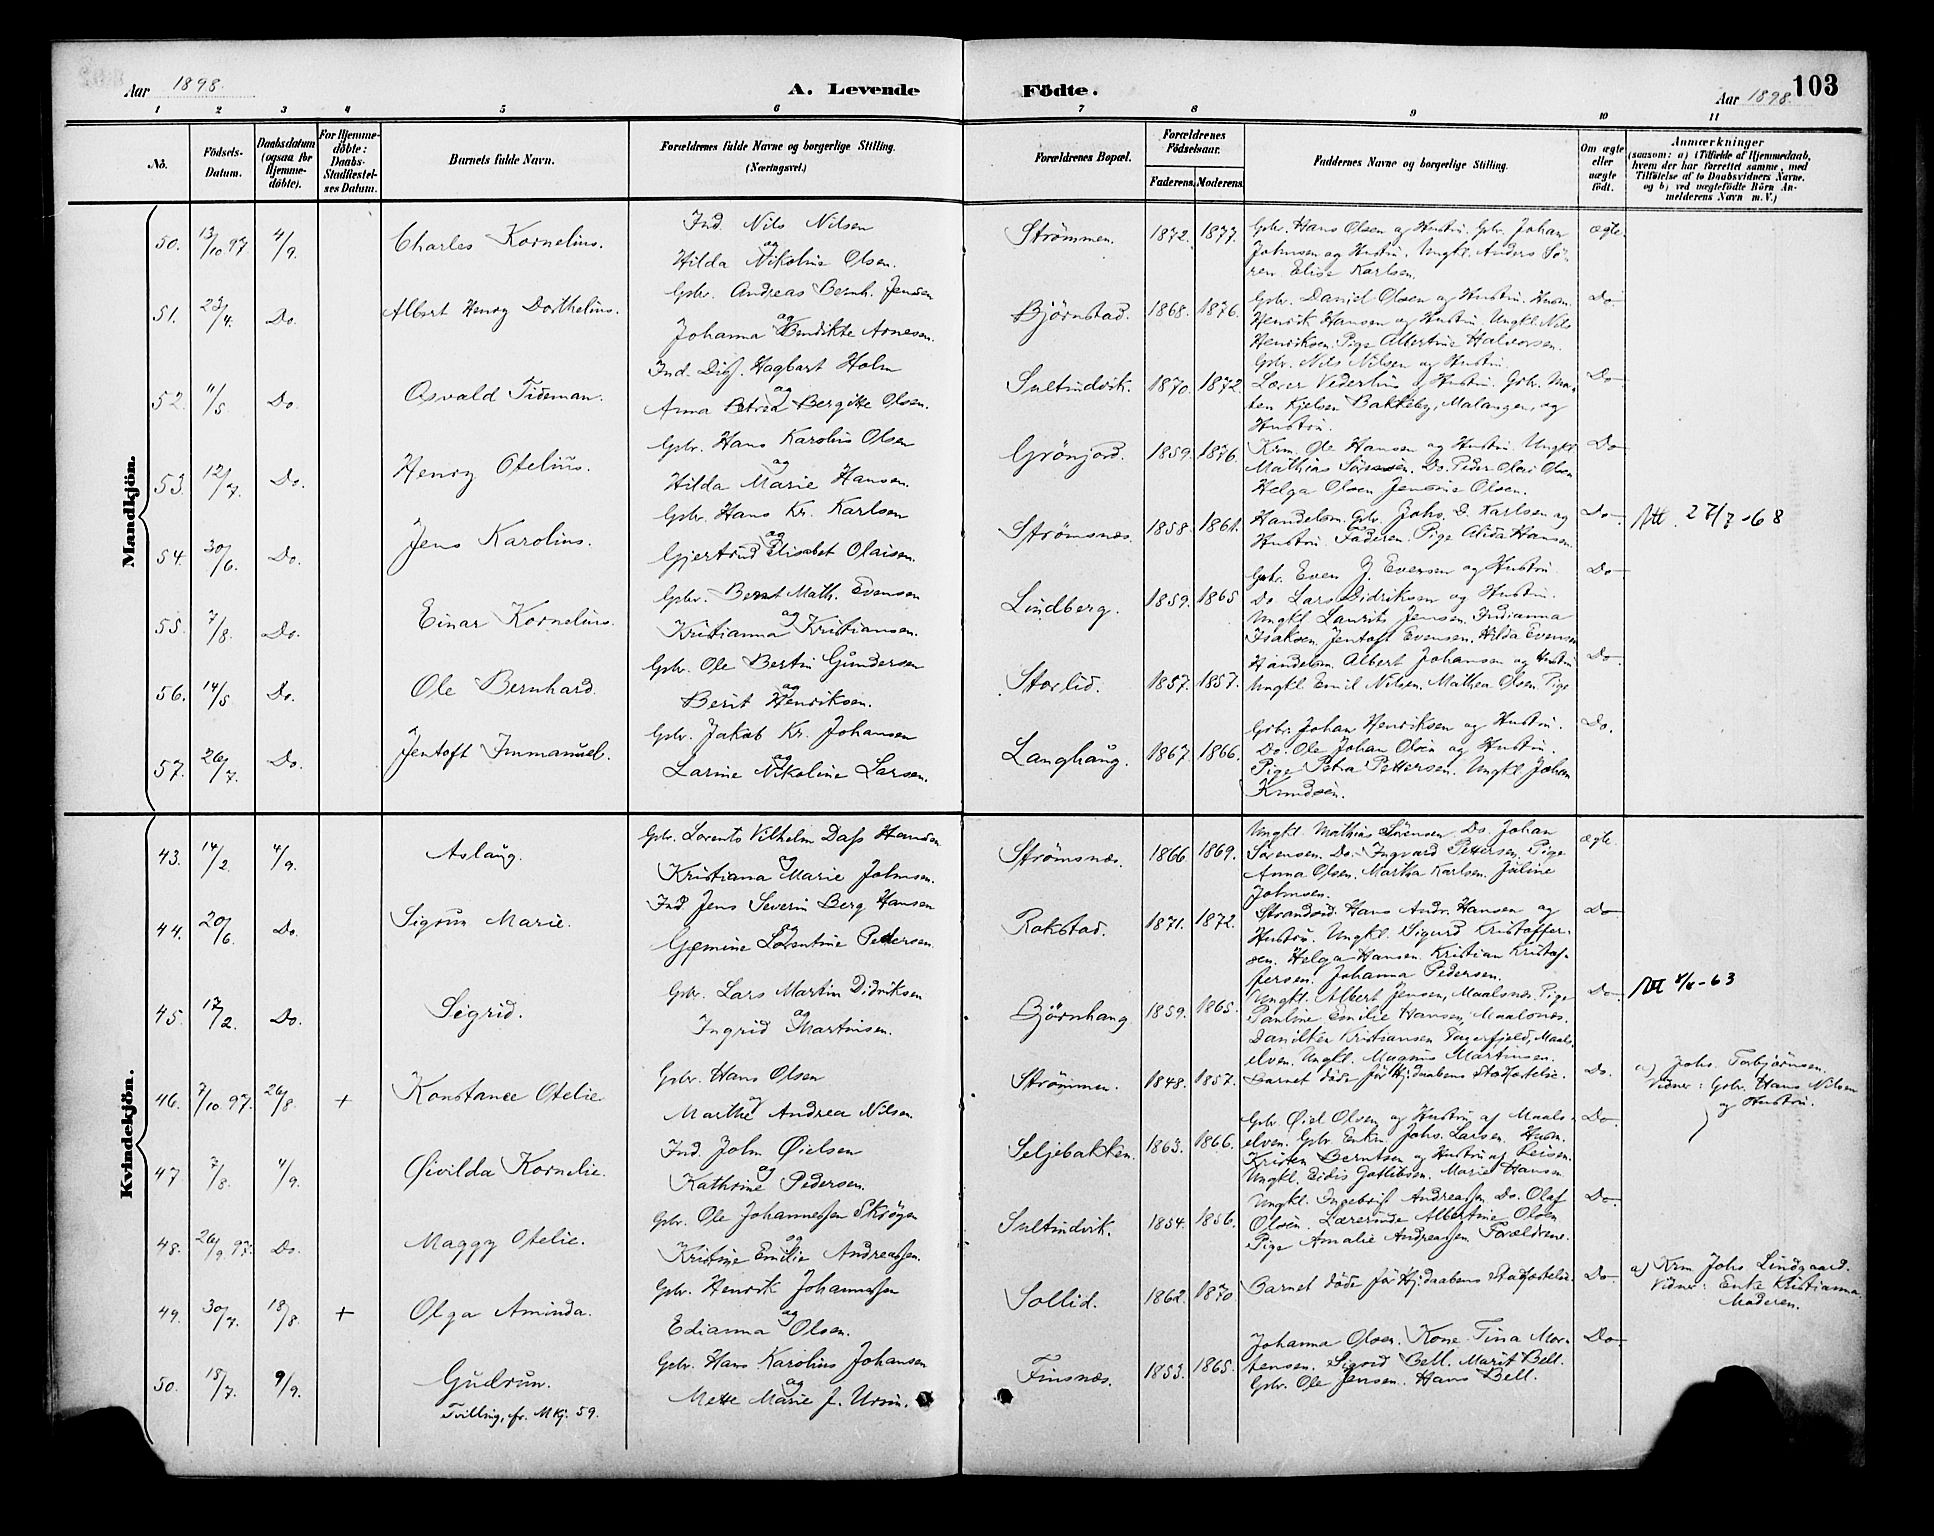 Aar 1898.
A. Levende Födte.
Aar 1898.
103
1 2 3 4 5 6 7 8 9 10 11
No.
Födsels-Datum.
Daabsdatum (ogsaa for Hjemme-döbte).
For Hjemme-döbte: Daabs-Stadfæstel-ses Datum.
Barnets fulde Navn.
Forældrenes fulde Navne og borgerlige Stilling. (Næringsvei.)
Forældrenes Bopæl.
Forældrenes Födselsaar.
Faderens. Moderens.
Faddernes Navne og borgerlige Stilling.
Om ægte eller uægte födt.
Anmærkninger
(saasom: a) i Tilfælde af Hjemmedaab, hvem der har forrettet samme, med Tilföielse af to Daabsvidners Navne. og b) ved uægtefödte Börn An-melderens Navn m. V.)
Mandkjön.
50. 13/10 97 4/9. Charles Kornelius. Ind. Nils Nilsen og Hilda Nikoline Olsen. Strömmen. 1872. 1877. Gbr. Hans Olsen og Hustru. Gbr. Johan
Johnsen og Hustru. Ungkl. Anders Sö-
ren Elise Karlsen. ægte.
51. 23/4. Do. Albert Henry Dorthelius. Gbr. Andreas Bernh. Jensen og Johanna Bendikte Arnesen. Björnstad. 1868. 1876. Gbr. Daniel Olsen og Hustru. Husm.
Henrik Hansen og Hustru. Ungkl. Nils
Henriksen. Pige Albertine Halvorsen. Do
52. 11/5 Do. Osvald Tideman. Ind. Hagbart Holm og Anna Petrea Bergitte Olsen. Sultindvik. 1870. 1872. Gbr. Nils Nilsen og Hustru
Lærer og Hustru. Gbr. Mar-
ten Kjelsen Bakkeby, Malangen, og
Hustru. Do
53. 12/7. Do. Henry Otelius. Gbr. Hans Karolius Olsen og Hilda Marie Hansen. Grönjord. 1859. 1876 Krm. Ole Hansen og Hustru. Ungkl.
Mathias Sörensen. Do. Peder Olai Olsen
Helga Olsen Jensine Olsen. Do
54. 30/6. Do. Jens Karolius. Gbr. Hans Kr. Karlsen og Gjertrud Elisabet Olaisen. Strömsnæs. 1858. 1861. Handelsm. Gbr. Johs. D. Karlsen og
Hustru. Faderen. Pige Alida Hansen. Do 27/7-68
55. 7/8. Do. Einar Kornelius. Gbr. Bernt Math. Evensen og Kristianna Kristiansen. Lindberg. 1859. 1865 Gbr. Even J. Evensen og Hustru.
Do. Lars Didriksen og Hustru.
Ungkl. Laurits Jensen. Indianna
Isaksen. Jentoft Evensen. Hilda Evensen Do
56. 14/5 Do. Ole Bernhard. Gbr. Ole Bertin Gundersen og Berit Henriksen. Storlid. 1857. 1857. Handelsm. Albert Johansen og Hustru
Ungkl. Emil Nilsen. Mathea Olsen. Pige Do.
57. 26/7. Do. Jentoft Immanuel. Gbr. Jakob Kr. Johansen og Larine Nikoline Larsen. Langhaug. 1867. 1866. Gbr. Johan Henriksen og Hustru.
Do. Ole Johan Olsen og Hustru.
Pige Petra Pettersen. Ungkl. Johan
Knudsen. Do.
Kvindekjön.
43. 14/2 4/9. Aslaug. Gbr. Lorents Vilhelm Dass Hansen og Kristiana Marie Johnsen. Strömsnæs. 1866 1869. Ungkl. Mathias Sörensen. Do. Johan
Sörensen. Do. Ingvard Pettersen. Pige
Anna Olsen. Martha Karlsen. Juline
Johnsen. ægte.
44. 20/6. Do. Sigrun Marie. Ind Jens Severin Berg Hansen og Gjemine Lorentine Pedersen. Rokstad. 1871. 1872. Strandsid. Hans Andr. Hansen og
Hustru. Ungkl. Sigurd Kristoffer-
sen. Helga Hansen. Kristian Kristof-
fersen. Johanna Pedersen. Do
45. 17/2. Do. Sigrid. Gbr. Lars Martin Didriksen og Ingrid Martinsen. Björnhaug 1859. 1865. Ungkl. Albert Jensen, Maalsnes. Pige
Pauline Emilie Hansen, Maalsnæs.
Kristiansen Maals-
elven. Ungkl. Magnus Martinsen. Do 8/6-63
46. 7/10 97. 26/8. + Konstance Otelie Gbr. Hans Olsen og Marthe Andrea Nilsen Strömmen. 1848. 1857. Barnet döde för Hj.daabens Stadfæstelse. Do. a) Johs. Torbjörnsen.
Vidner: Gbr. Hans Nilsen
og Hustru.
47 7/8. 4/9. Öivilda Kornelie. Ind. John Öielsen og Kathrine Pedersen. Seljebakken. 1863. 1866. Gbr. Öiel Olsen og Hustru af Maals-
elven. Gbr. Enke Johs. Larsen. Husm.
Kristen Berntsen og Hustru af Leisen.
Ungkl. Eidis Gotlibsen. Marie Hansen Do
48. 26/9 97. Do. Maggy Otelie. Gbr. Ole Johannessen Skrögen og Kristine Emilie Andreassen. Sultindvik. 1854. 1856. Ungkl. Ingebrigt Andreassen. Do. Olaf
Olsen. Lærerinde Albertine Olsen
Pige Amalie Andreassen. Forældrene. Do
49. 30/7. 18/8 + Olga Aminda. Gbr. Henrik Johannessen og Edianna Olsen. Sollid. 1862. 1870 Barnet döde för Hj.daabens Stadfæstelse. Do a) Krm Johs. Lindgaard.
Vidner: Enke Kristianna.
Moderen.
50. 15/7. 9/9. Gudrun. Tvilling, fr. Mkj. 59. Gbr. Hans Karolius Johansen og Mette Marie J. Ursin. Finsnæs. 1853. 1865. Johanna Olsen. Kone Tina Mor-
tensen. Sigurd Bell. Marit Bell.
Gbr. Ole Jensen. Hans Bell. Do